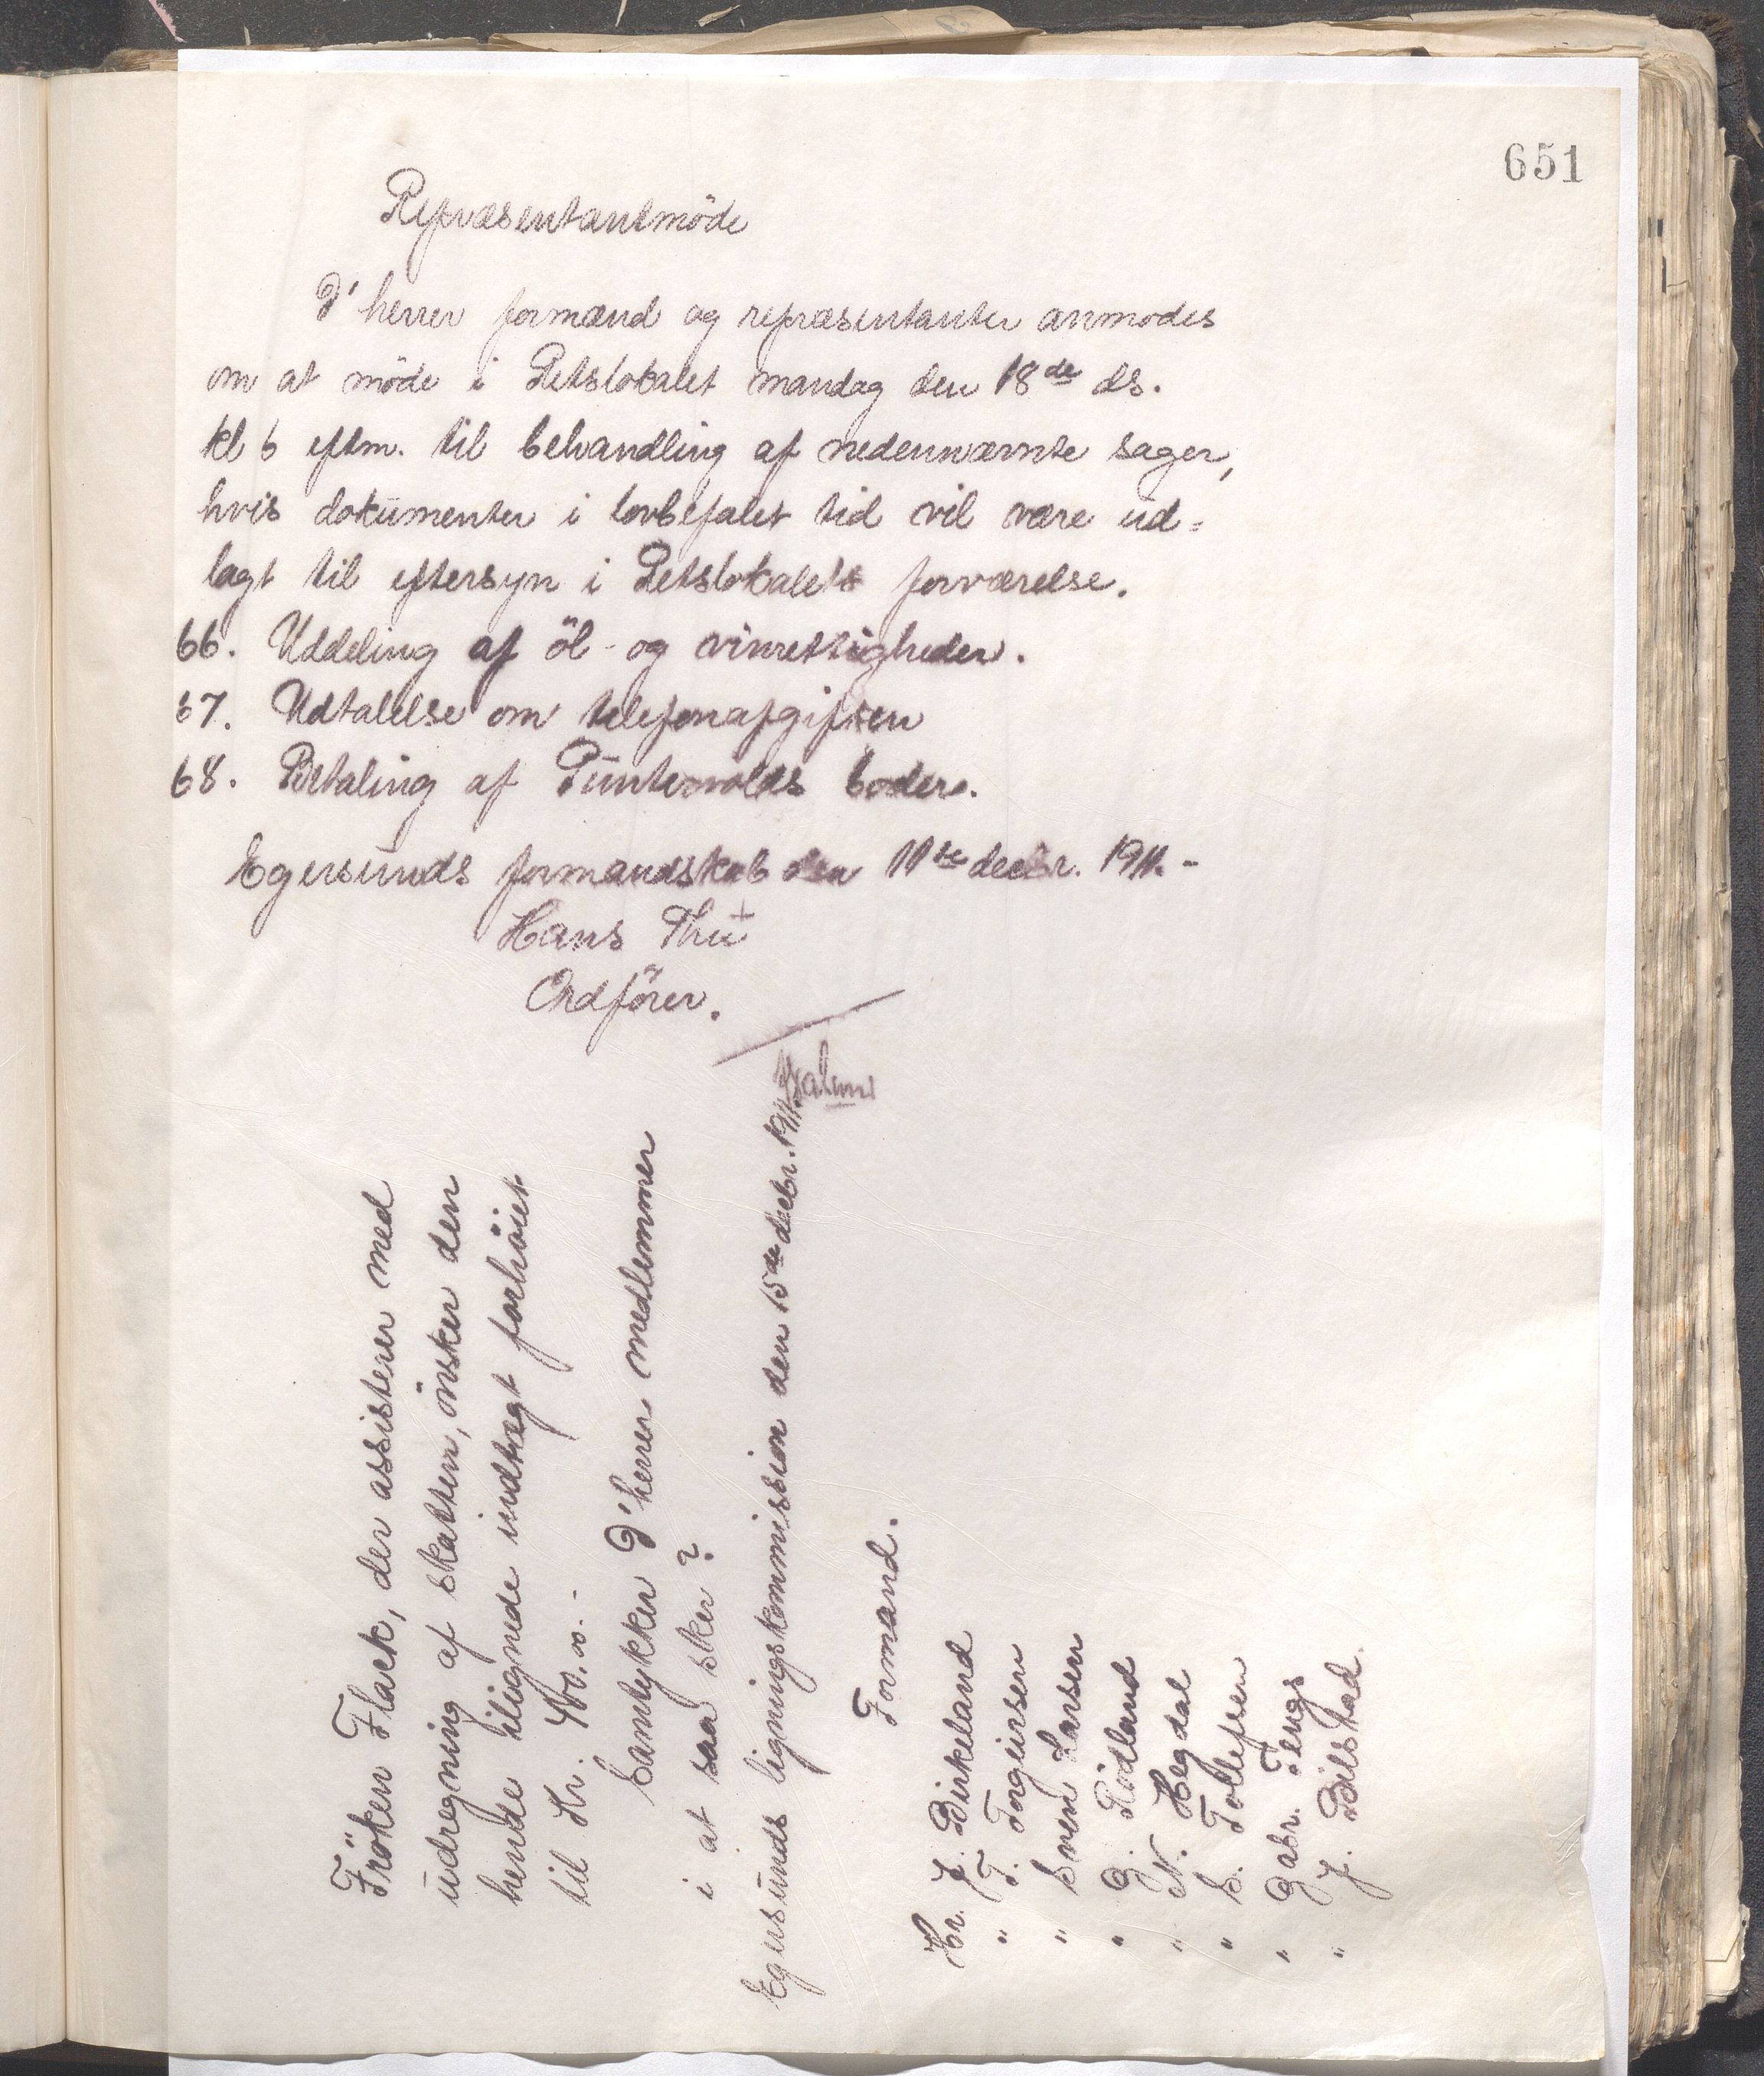 651
Repræsentantmöde
D'herrer formænd og repræsentanter anmodes
om at möde i Retslokalet mandag den 18de ds.
kl 6 eftm. til behandling af nedennævnte sager,
hvis dokumenter i lovbefalet tid vil være ud-
lagt til eftersyn i Retslokalets forværelse.
66. Uddeling af öl- og vinrettigheder.
67. Udtalelse om telefonafgiften
68. Betaling af Puntervolds boder.
Egersunds formandskab den 11te decbr. 1911.-
Hans Thu
Ordförer.
Fröken Flack, der assisterer med
udregning af skatten, önsker den
hende ilignede indtægt forhöiet
til Kr. 400.00.-
Samtykker D'herrer medlemmer
i at saa sker?
Egersunds ligningskommission den 15de decbr. 1911.
Formand.
Hr. J. Birkeland
" T. Torgeirsen
" Sven Larsen
" G. Rödland
" N. Hegdal
" S. Tollefsen
" Gabr. Tengs
" J. Bilstad.